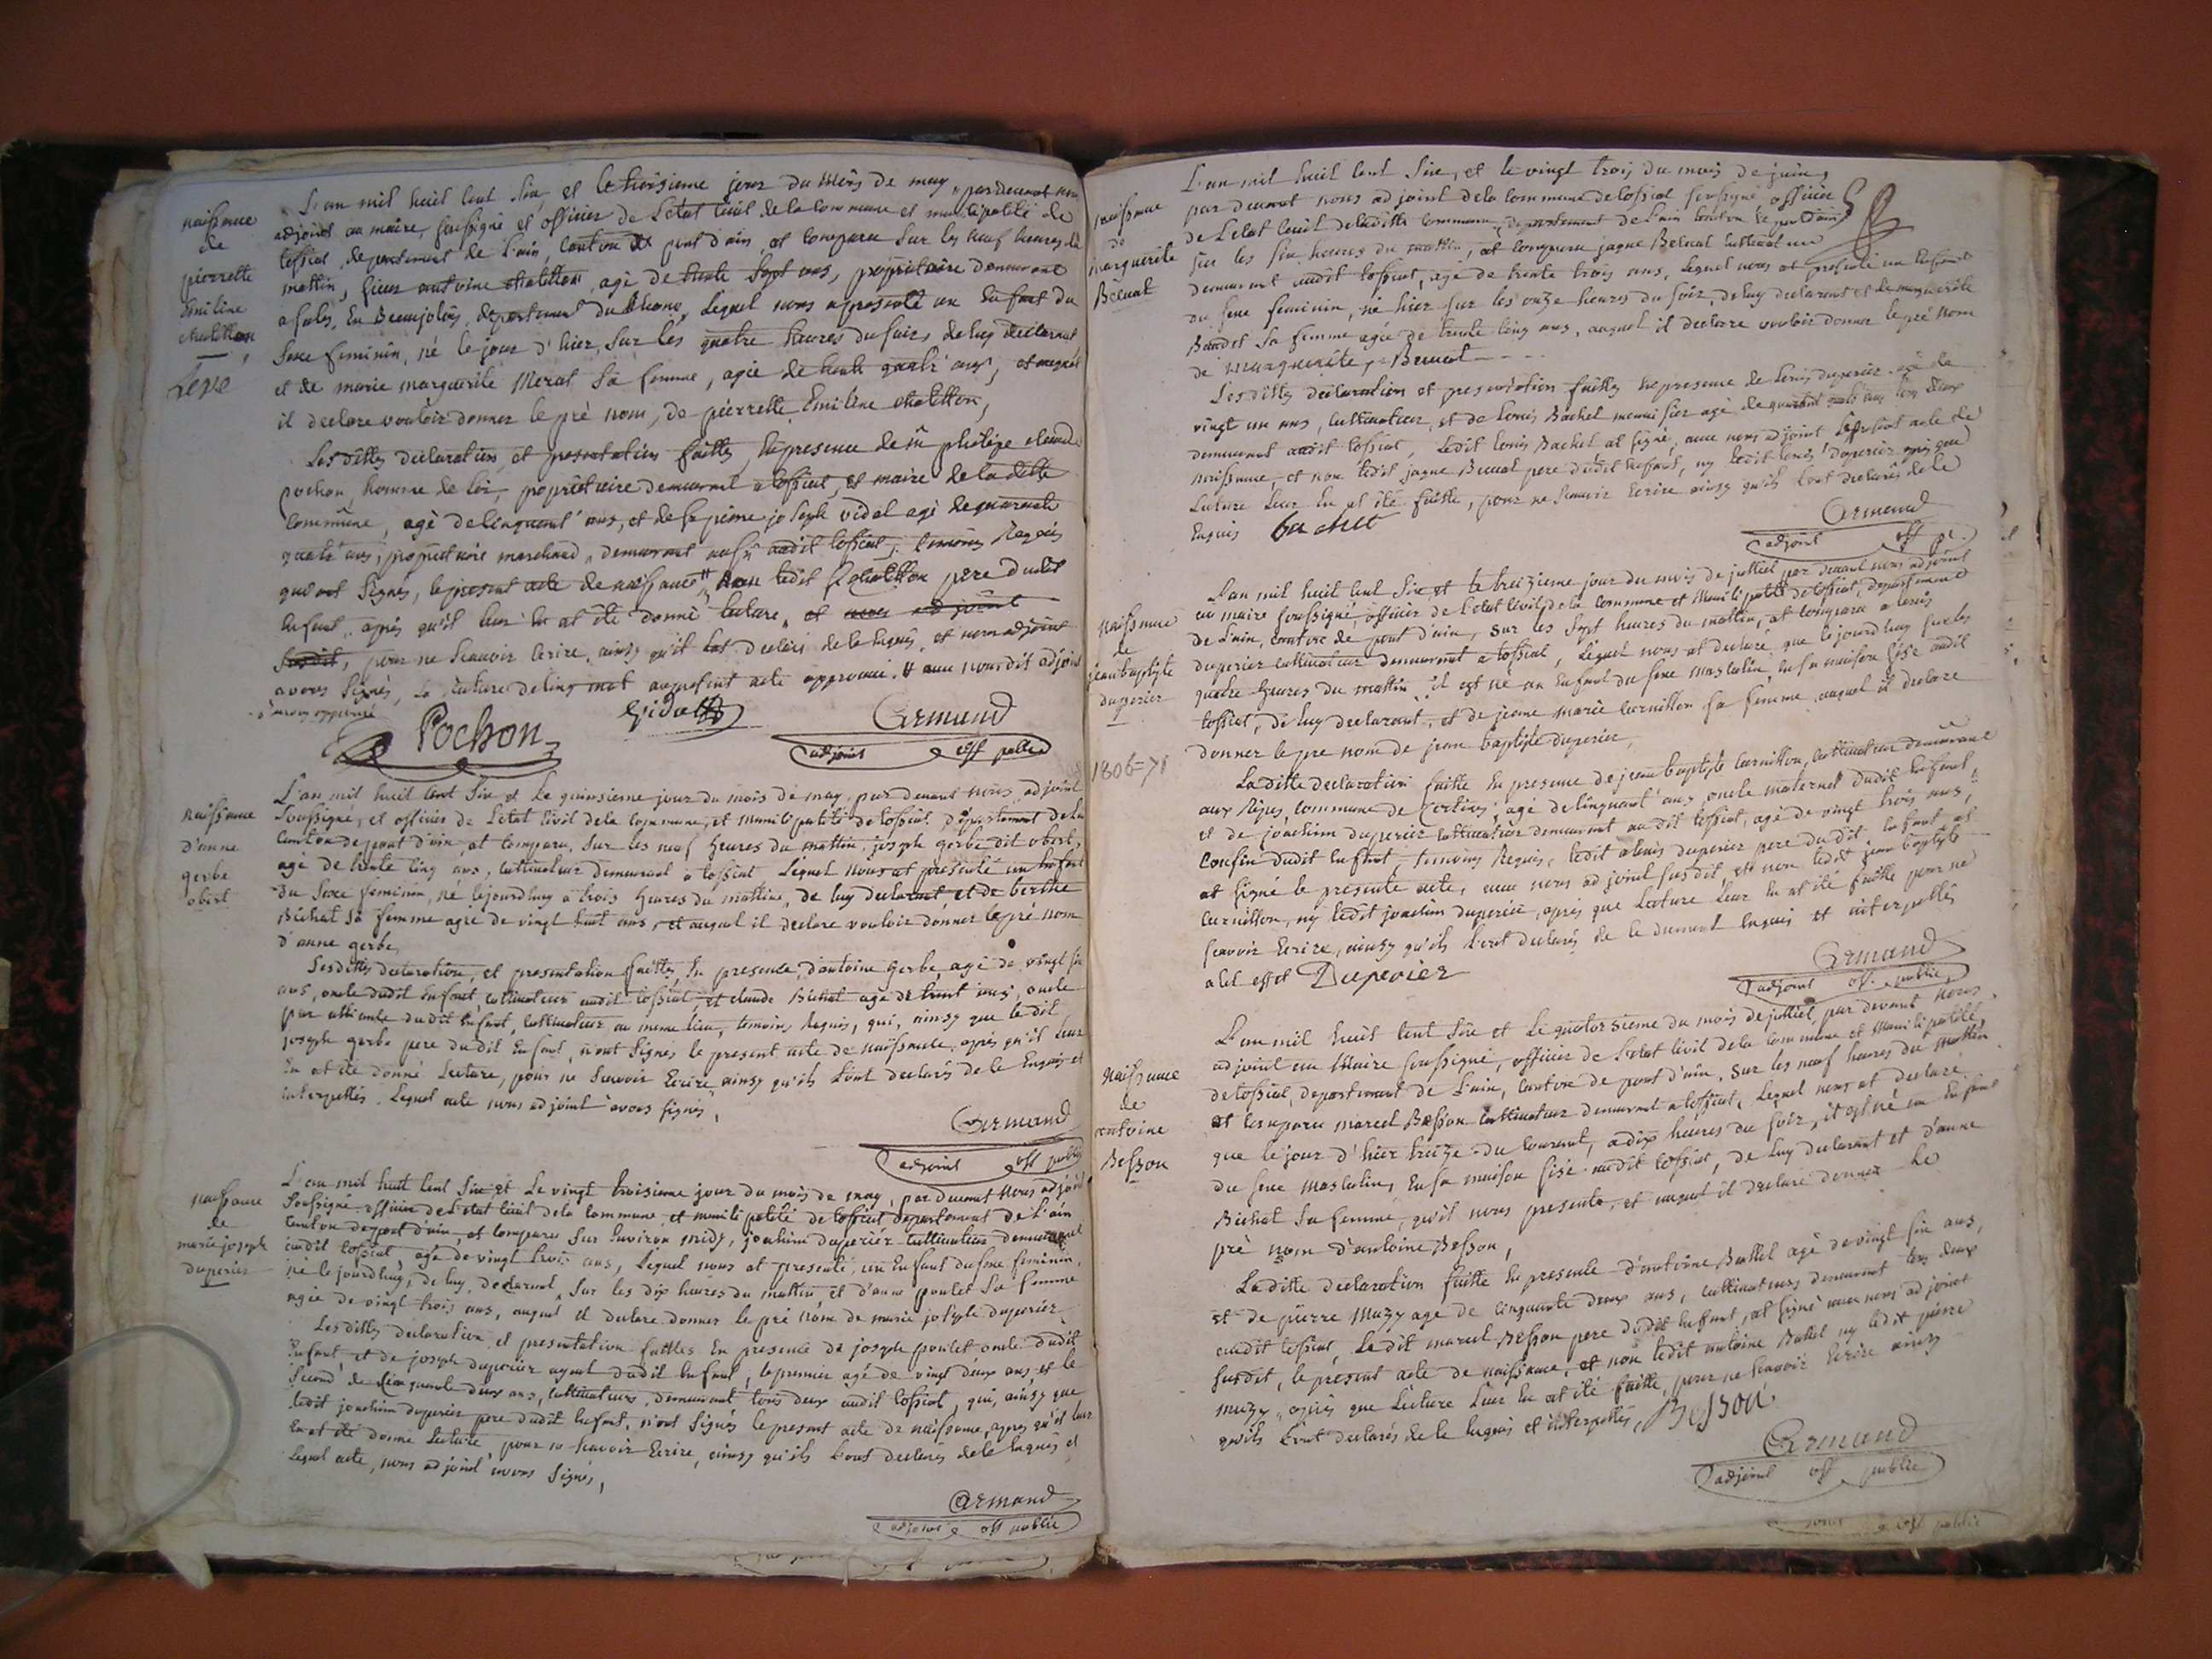 naissance
de
pierrette
émiline
chatillon
Levé
L'an mil huit cent six, et le troisieme jour du mois de may, par devant nous
adjoint au maire, soussigné et officier de l'etat civil de la commune et municipalité de
tossiat, departement de l'ain, canton de pont d'ain, at comparu sur les neuf heures du
mattin, sieur antoine chatillon, agé de trente sept ans, propriétaire demeurant
a salés, en Beaujolois, departement du Rhone, Lequel nous a presenté un Enfant du
sexe feminin, né le jour d'hier, sur les quatre heures du soir, de luy declarant
et de marie marguerite Merat sa femme, agée de trente quatre ans, et auquel
il declare vouloir donner le pré nom, de pierrette Emiline chatillon,
Lesdittes declaration et presentation faittes, En presence de
pochon, homme de loi, proprietaire demeurant a tossiat, et maire de la ditte
commune, agé de cinquant'ans, et de sr pierre joseph vidal agé de quarante
quatr'ans, proprietaire marchand, demeurant aussi audit tossiat, temoins Requis
qui ont Signés, le present acte de naissance # avec ledit sr chatillon pere dudit
Enfant, après qu'il leur En at été donné lecture, et nous adjoint
susdit, pour ne scavoir Ecrire, ainsy qu'il l'at declaré de le Enquis, et nous adjoint
avons Signés, la rature de cinq mot au present acte approuvée. # avec nous dit adjoint
Pochon
Vidal
Armand
adjoint off public
naissance
d'anne
gerbe
obert
L'an mil huit cent six et le quinsieme jour du mois de may, par devant nous adjoint
soussigné, et officier de l'etat civil de la commune, et municipalité de tossiat, departement de l'ain
canton de pont d'ain, at comparu, sur les neuf heures du mattin, joseph gerbe dit obert,
agé de trente cinq ans, cultivateur demeurant a tossiat, Lequel nous at presenté un Enfant
du sexe feminin, né cejourdhuy a trois heures du mattin, de luy declarant, et de berthe
Bichat sa femme agée de vingt huit ans, et auquel il declare vouloir donner le pré nom
d'anne gerbe,
Lesdittes declaration, et presentation faittes, En presence, d'antoine gerbe, agé de vingt six
ans, oncle dudit Enfant, cultivateur audit tossiat, et claude Bichat agé de trent'ans, oncle
par alliance dudit Enfant, cultivateur au meme lieu, temoins Requis, qui, ainsy que ledit
joseph gerbe pere dudit Enfant, n'ont Signés le present acte de naissance, après qu'il leur
En at été donné Lecture, pour ne Scavoir Ecrire, ainsy qu'ils l'ont declarés de le Enquis et
interpellés. Lequel acte nous adjoint avons Signés,
Armand
adjoint off public
naissance
de
marie joseph
duperier
L'an mil huit cent six et Le vingt troisieme jour du mois de may, par devant nous adjoint
soussigné officier de l'etat civil de la commune et municipalité de tossiat departement de l'ain
canton de pont d'ain, et comparu sur Environ midy, joachim duperier cultivateur demeurant
audit tossiat, agé de vingt trois ans, Lequel nous at presenté, un Enfant du sexe feminin,
né le jourdhuy, de luy, declarant, sur les dix heures du mattin, et d'anne poulet sa femme
agée de vingt trois ans, auquel il declare donner le pré nom de marie joseph duperier
Lesdittes declaration et presentation faittes En presence de joseph poulet oncle dudit
Enfant et de joseph duperier ayeul dudit Enfant, le premier agé de vingt deux ans, et le
second de cinquante deux ans, cultivateurs, demeurant tous deux audit tossiat, qui, ainsy que
ledit joachim duperier pere dudit Enfant, n'ont Signés le present acte de naissance, après qu'il leur
En at été donné Lecture, pour ne scavoir Ecrire, ainsy qu'ils l'ont declarés de le Enquis et
Lequel acte, nous adjoint avons Signés,
Armand
adjoint off public
naissance
de
marguerite
Beluat
L'an mil huit cent six, et le vingt trois du mois de juin,
par devant nous adjoint de la commune de tossiat soussigné officier
de l'etat civil de laditte commune, departement de l'ain canton de pont d'ain
sur les six heures du mattin, at comparu jaque Beluat cultivateur
demeurant audit tossiat, agé de trente trois ans, Lequel nous at presenté un Enfant
du sexe feminin, né hier sur les onze heures du soir, de luy declarant et de marguerite
Baudet sa femme agée de trente cinq ans, auquel il declare vouloir donner le pré nom
de marguerite Beluat
Lesdittes declaration et presentation faittes En presence de Louis duperier agé de
vingt un ans, cultivateur, et de Louis Bachet menuisier agé de quarant quatr ans tous deux
demeurant audit tossiat, Ledit Louis Bachet at Signé, avec nous adjoint Le present acte de
naissance, et non ledit jaque Beluat pere dudit Enfant, ny ledit Louis duperier après que
Lecture leur En at été faitte, pour ne Scavoir Ecrire ainsy qu'ils l'ont declarés de le
Enquis bachet
Armand
adjoint off p.
naissance
de
jean baptiste
duperier
1806=71
L'an mil huit cent six et le treizieme jour du mois de juillet par devant nous adjoint
au maire soussigné, officier de l'etat civil de la commune et municipalité de tossiat, departement
de l'ain, canton de pont d'ain, sur les sept heures du mattin, at comparu alexis
duperier cultivateur demeurant a tossiat, Lequel nous at declaré, que cejourdhuy sur les
quatre heures du mattin, il est né un Enfant du sexe masculin, En sa maison sise audit
tossiat, de luy declarant, et de jeanne marie Curnillon sa femme auquel il declare
donner le pre nom de jean baptiste duperier,
La ditte declaration faitte En presence de jean baptiste Curnillon, cultivateur demeurant
aux Ripes, commune de Certines, agé de cinquant'ans, oncle maternel dudit Enfant,
et de joachim duperier cultivateur demeurant audit tossiat, agé de vingt trois ans,
cousin dudit Enfant, temoins Requis, ledit alexis duperier pere dudit Enfant at
at signé le presente acte, avec nous adjoint susdit, et non ledit jean baptiste
Curnillon, ny ledit joachim duperier, après que Lecture leur En at été faitte pour ne
scavoir Ecrire, ainsy qu'ils l'ont declarés de le dument Enquis et interpellés
a cet effet Duperier
Armand
adjoint off. public
Naissance
de
antoine
Besson
L'an mil huit cent six et le quatorsieme du mois de juillet, par devant nous
adjoint au Maire soussigné, officier de l'etat civil de la commune et municipalité
de tossiat, departement de l'ain, canton de pont d'ain, sur les neuf heures du mattin
at comparu marcel Besson cultivateur demeurant a tossiat, Lequel nous at declaré,
que le jour d'hier treize du courant, a dix heures du soir, il est né un Enfant
du sexe masculin, En sa maison sise audit tossiat, de luy declarant et d'anne
Bichat sa femme, qu'il nous presente, et auquel il declare donner Le
pré nom d'antoine Besson,
La ditte declaration faitte En presence d'antoine Bathel agé de vingt six ans,
et de pierre Muzy agé de cinquante deux ans, cultivateurs demeurant tous deux
audit tossiat, Le dit marcel Besson pere dudit Enfant, at signé avec nous adjoint
susdit, le present acte de naissance, et non ledit antoine Bathel ny ledit pierre
muzy, après que Lecture leur En at été faitte, pour ne Scavoir Ecrire ainsy
qu'ils l'ont declarés de le Enquis et interpellés, Besson
Armand
adjoint off public